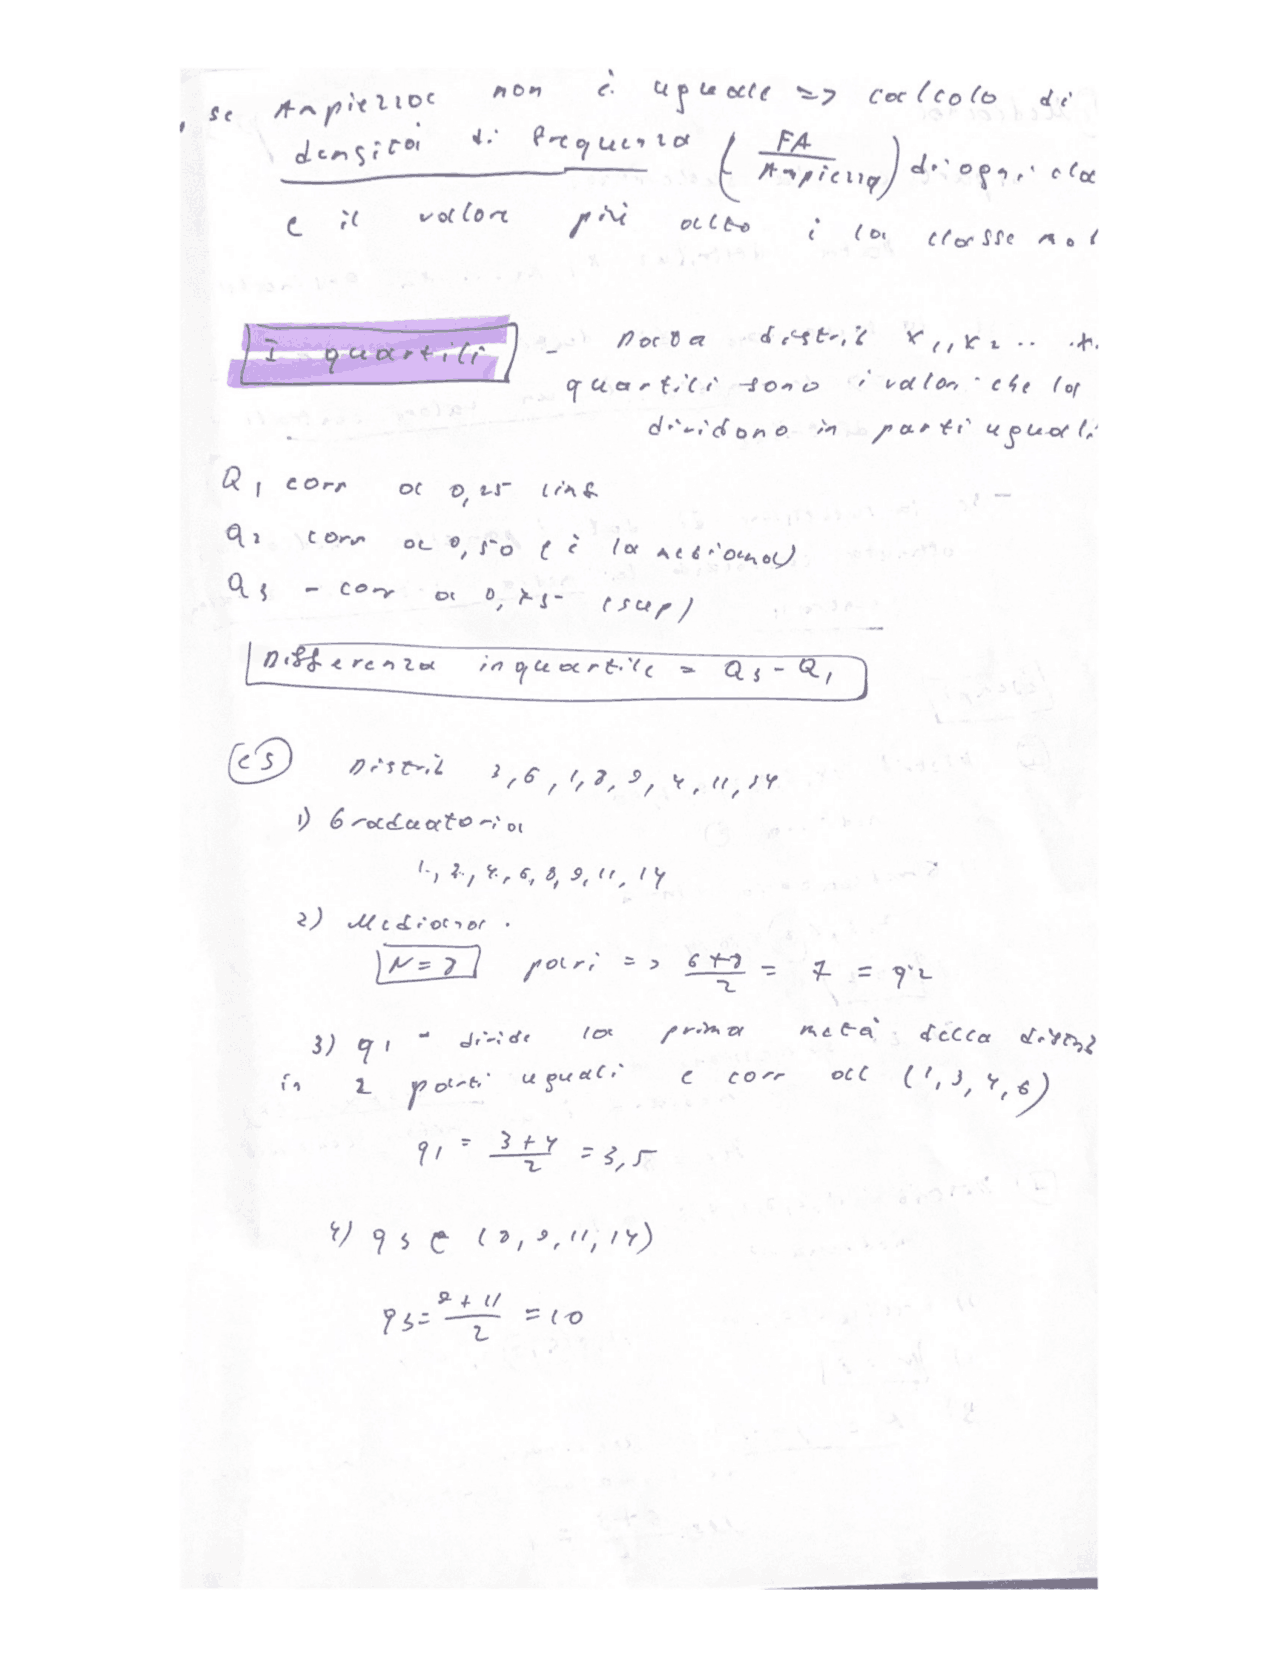 se Ampiezza non è uguale => calcolo di
densità di frequenza (FA / Ampiezza) di ogni cla
e il valore più alto è la classe mod
I quartili - Data distrib x1, x2 .. x.
quartili sono i valori che la
dividono in parti uguali
Q1 corr a 0,25 (inf
Q2 corr a 0,50 (è la mediana)
Q3 - corr a 0,75 (sup)
Differenza inquartile = Q3 - Q1
es Distrib 3, 6, 1, 8, 9, 4, 11, 14
1) Graduatoria
1, 3, 4, 6, 8, 9, 11, 14
2) Mediana.
N = 8 pari => 6+8 / 2 = 7 = q2
3) q1 - divide la prima metà della distrib
in 2 parti uguali e corr al (1, 3, 4, 6)
q1 = 3+4 / 2 = 3,5
4) q3 e (8, 9, 11, 14)
q3 = 9+11 / 2 = 10